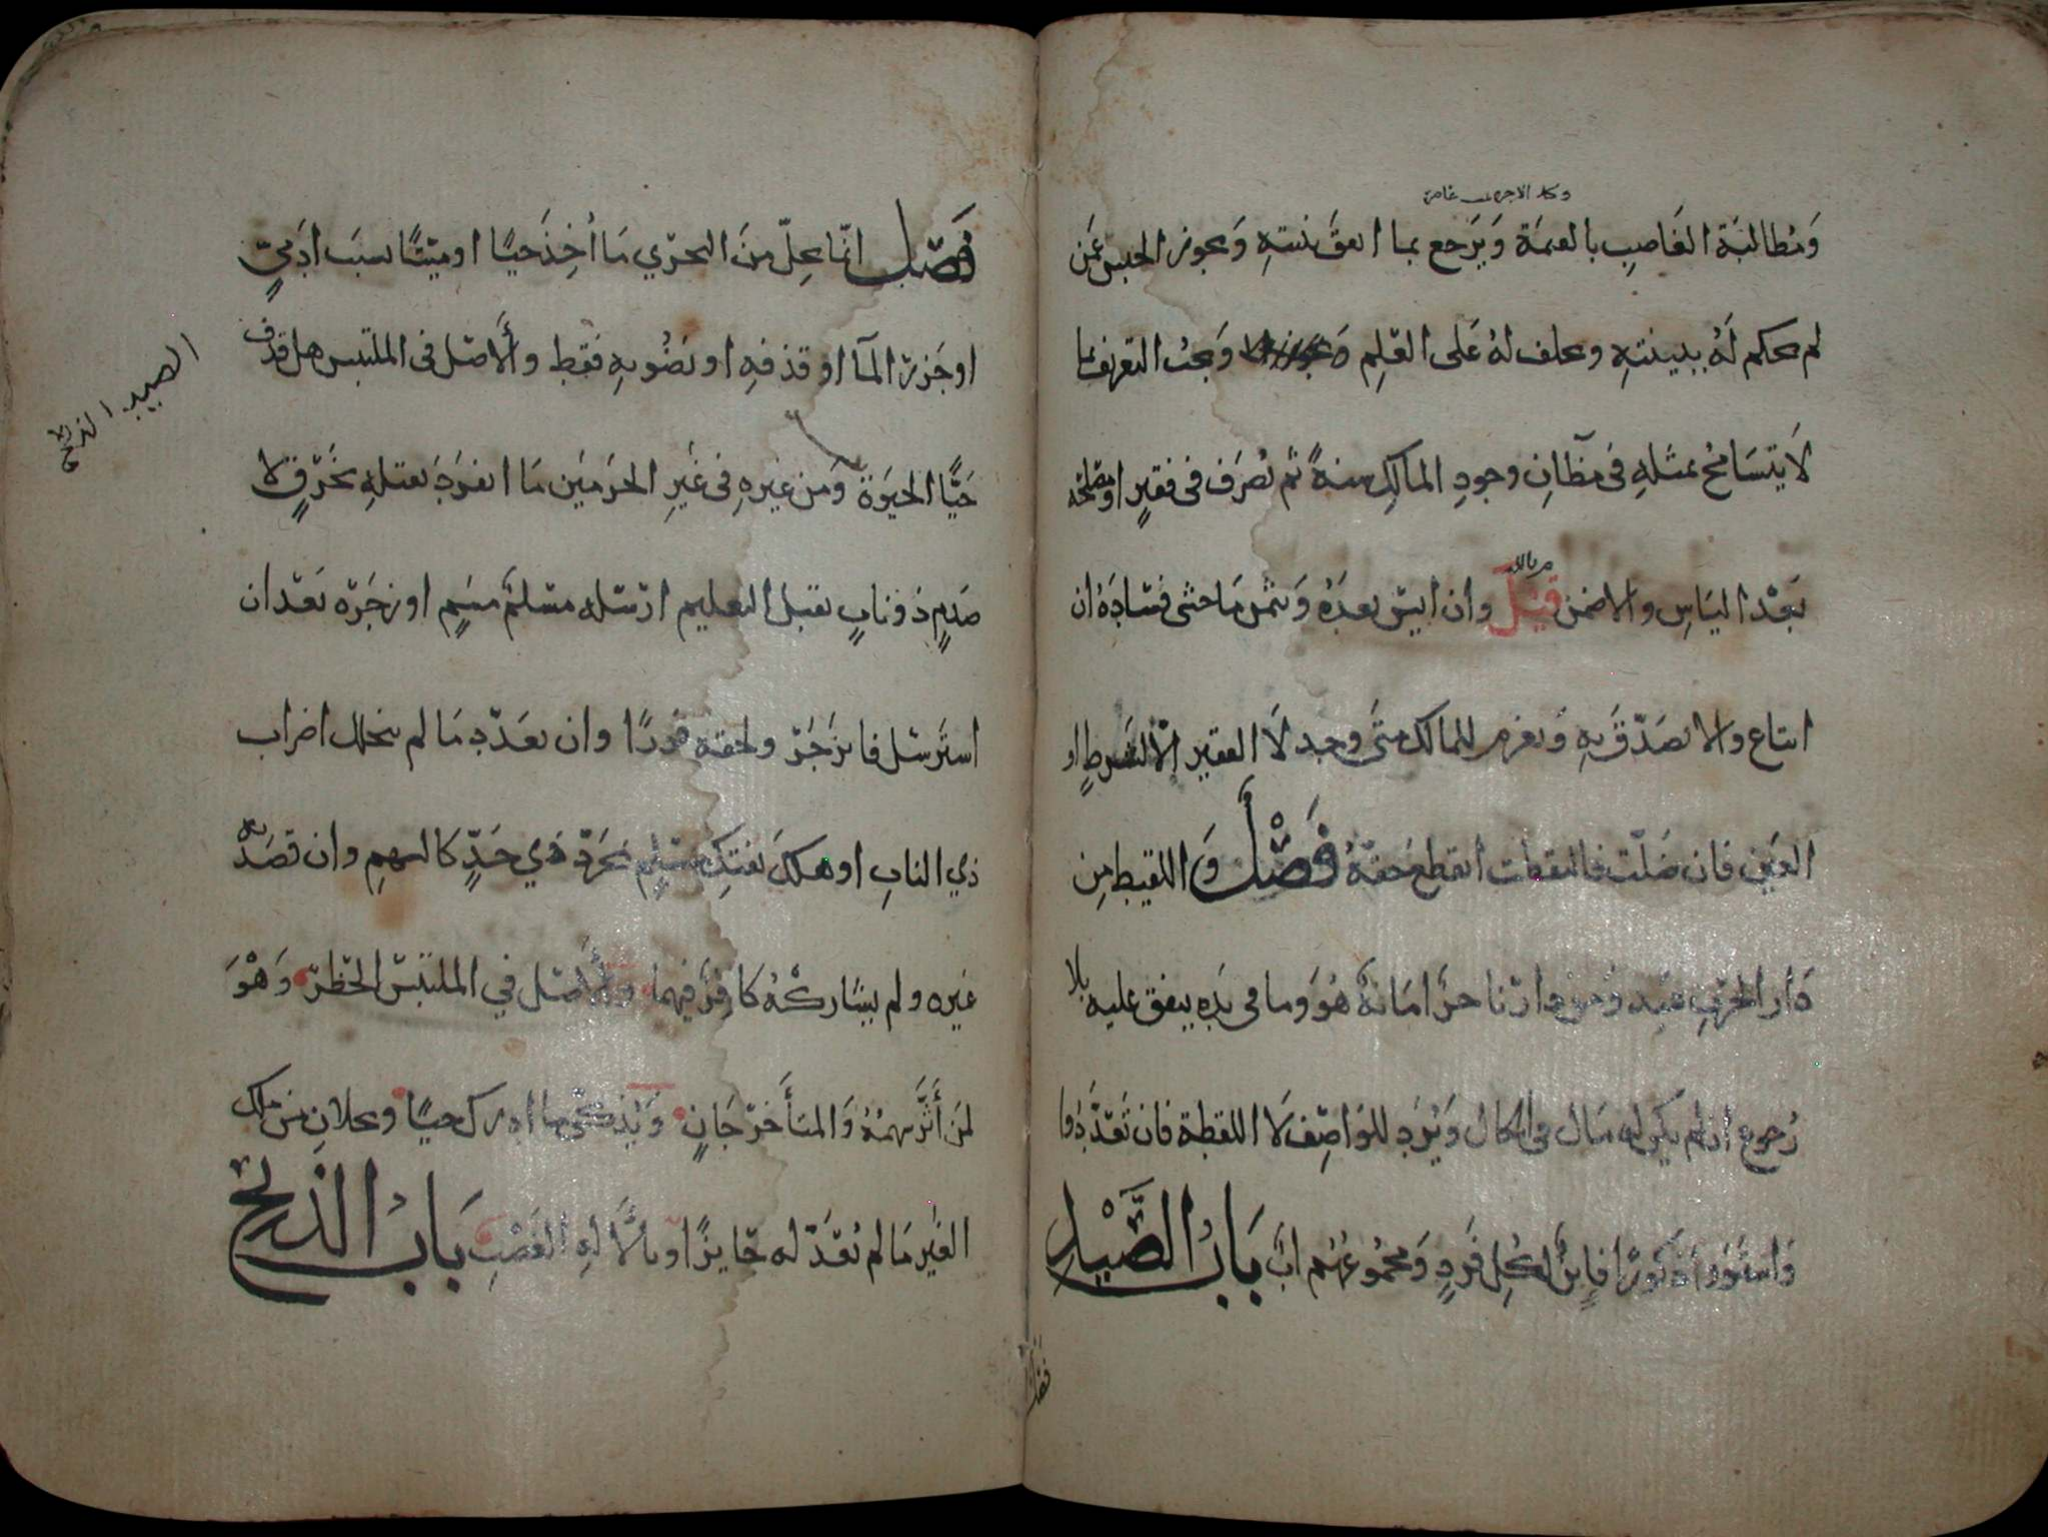 ومطالبة الغاصب بالقيمة ويرجع بما انفق بنيته ويجوز الحبس عمن
لم يحكم له ببينته ويحلف له على العلم ويجب التعريف بما
لا يتسامح بمثله في مظان وجود المالك سنة ثم تصرف في فقير او مصلحة
بعد الياس والا ضمن قيل وان ايس بعده وبثمن ما خشي فساده ان
ابتاع والا تصدق به ويغرم للمالك متى وجد لا الفقير الا لشرط او
العين فان ضلت فالتقطت انقطع حقه فصل واللقيط من
دار الحرب عبد ومن دارنا حر امانة هو وما في يده ينفق عليه بلا
رجوع ان لم يكن له مال في الحال ويرد للواصف لا اللقطة فان تعددوا
واستووا ذكورا فابن لكل فرد ومجموعهم اب باب الصيد
فصل انما يحل من البحري ما اخذ حيا او ميتا بسبب ادمي
او جزر الما او قذفه او نضوبه فقط والاصل في الملتبس هل قذف
حيا الحيوة ومن غيره في غير الحرمين ما انفرد بقتله بخرق لا
صدم ذو ناب يقبل التعليم ارسله مسلم مسم او زجره بعد ان
استرسل فانزجر ولحقه فورا وان تعدد ما لم يتخلل اضراب
ذي الناب او هلك بفتك مسلم بمجرد ذي حد كالسهم وان قصد به
غيره ولم يشاركه كافر فيهما والاصل في الملتبس الحظر وهو
لمن أثر سهمه والمتأخر جان ويذكى ما ادرك حيا ويحلان من ملك
الغير ما لم يعد له حايزا وبالالة الغصب باب الذبح
الصيد الذبح